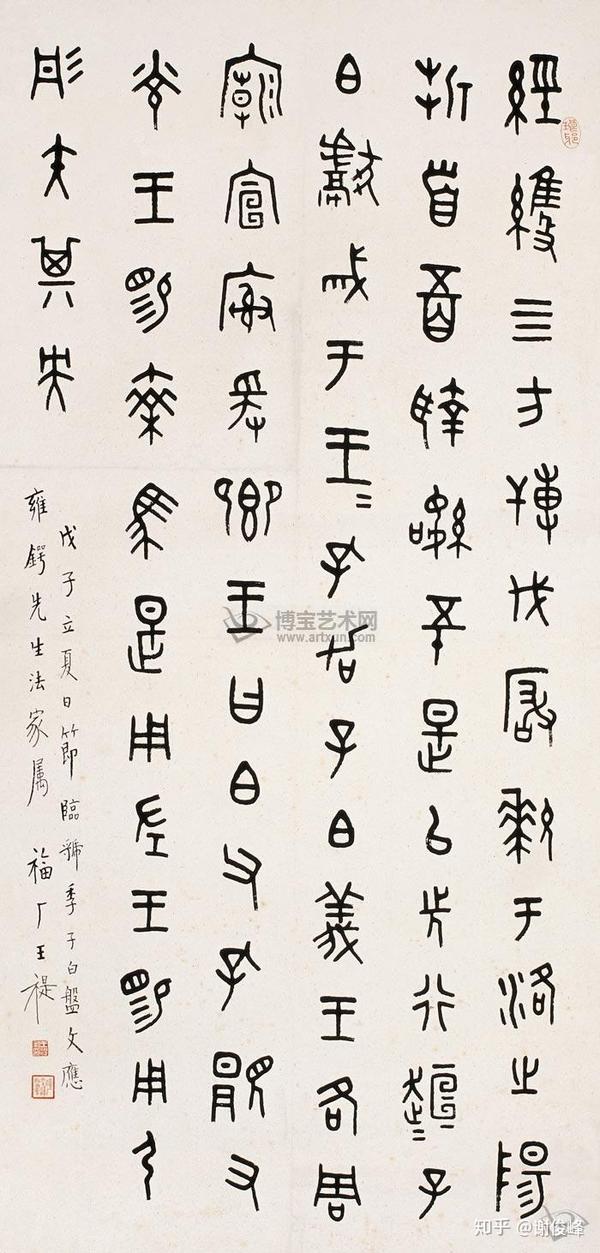 經維四方搏伐玁狁于洛之陽
折首五百執訊五十是以先行桓=子
白獻馘于王=孔加子白義王各周
廟宣榭爰鄉王曰白父孔顯又
光王賜乘馬是用左王賜用弓
彤矢其央
戊子立夏日節臨虢季子白盤文應
雍鍔先生法家属 福厂王禔
博宝艺术网
www.artxun.com
知乎 @谢俊峰